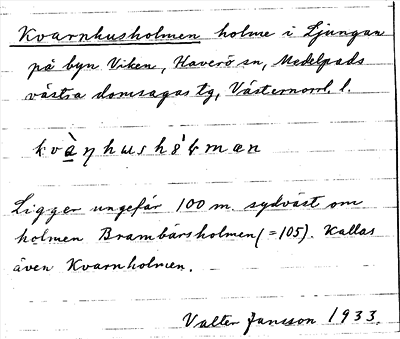 Kvarnhusholmen holme i Ljungan
på byn Viken, Haverö sn, Medelpads
västra domsagas tg, Västernorrl. l.
Ligger ungefär 100 m. sydväst om
holmen Brambärsholmen (=105). Kallas
även Kvarnholmen.
Valter Jansson 1933.